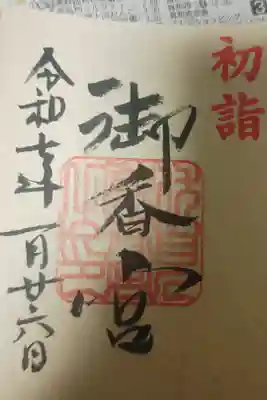 初詣
御香宮
令和七年一月廿六日